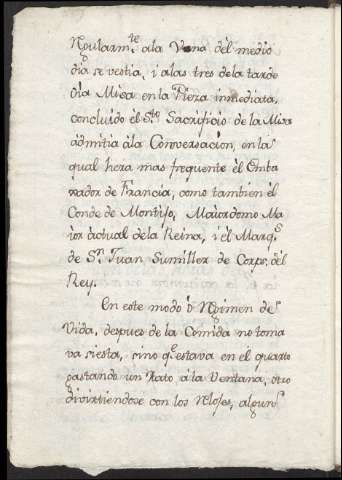 Regularm.te a la Una del medio
dia se vestia, i a las tres de la tarde
oìa Missa en la Pieza inmediata,
concluido èl S.to Sacrificio de la Misa
admitia à la Conversacion, en la
qual hera mas frequente èl Emba
xador de Francia, como tambien èl
Conde de Montijo, Maiordomo Ma
ior actual de la Reina, i èl Marq.s
de S.n Juan Sumiller de Corps, dèl
Rey.
En este modo ò Regimen de
Vida, despues de la Comida no toma
va siesta, sino q.e estava en èl quarto
pastando un Rato à la Ventana, otro
divirtiendose con los Reloxes, algun.s